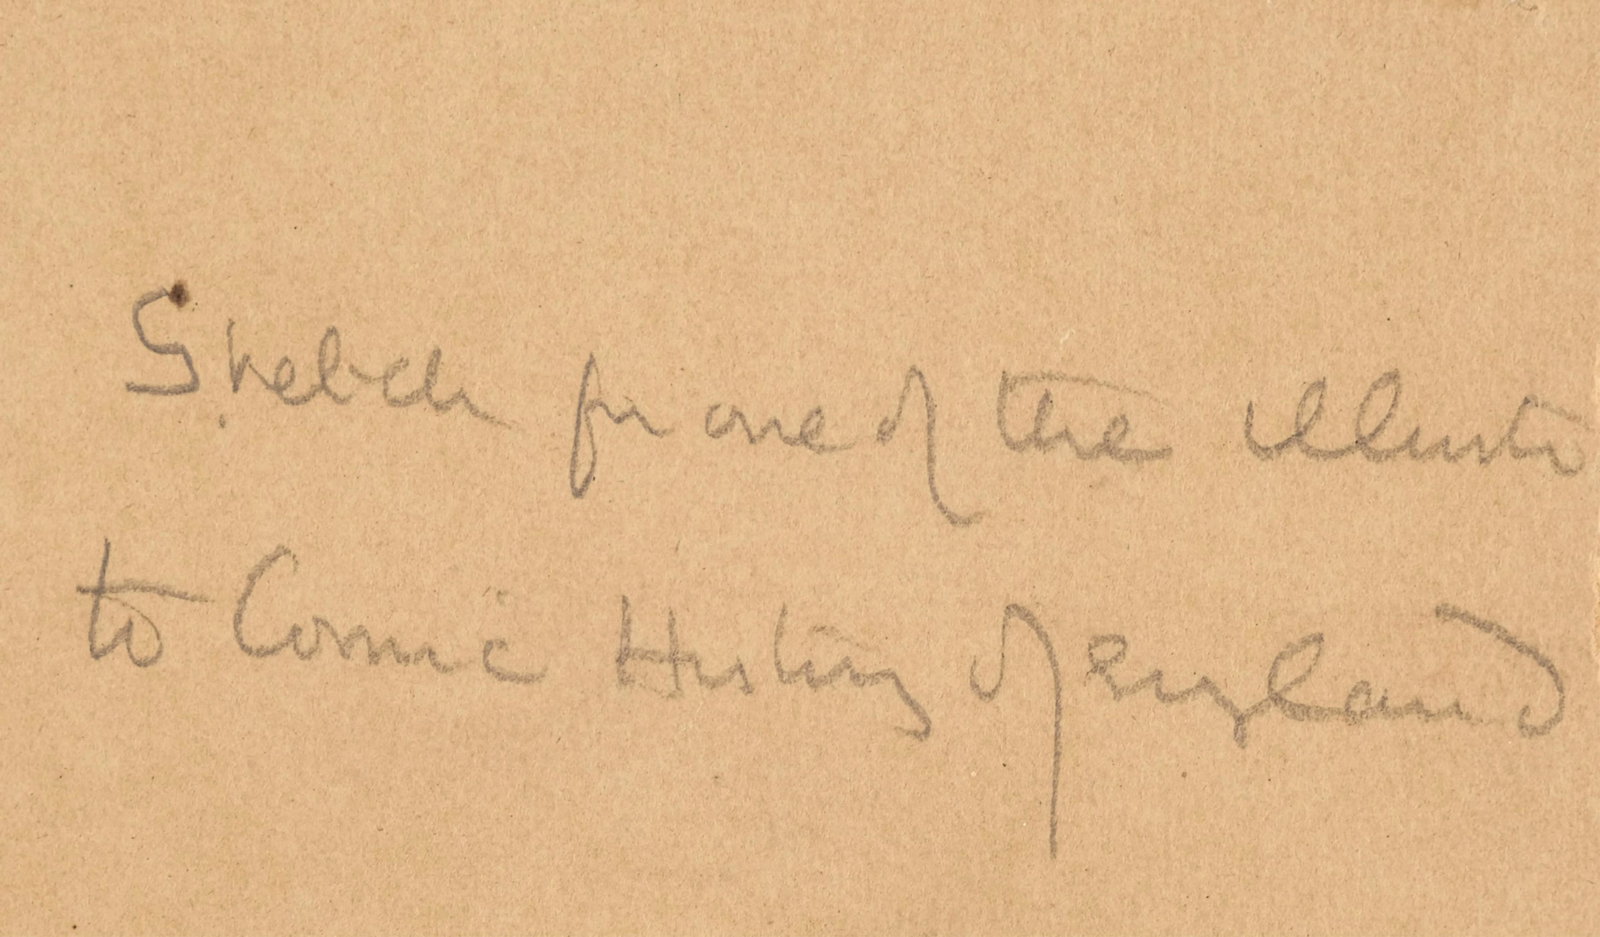 Sketch for one of the illusts
to Comic History of England